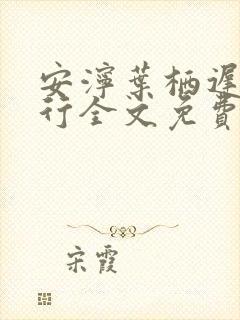 安濘葉栖遲
行全文免費
宋霞